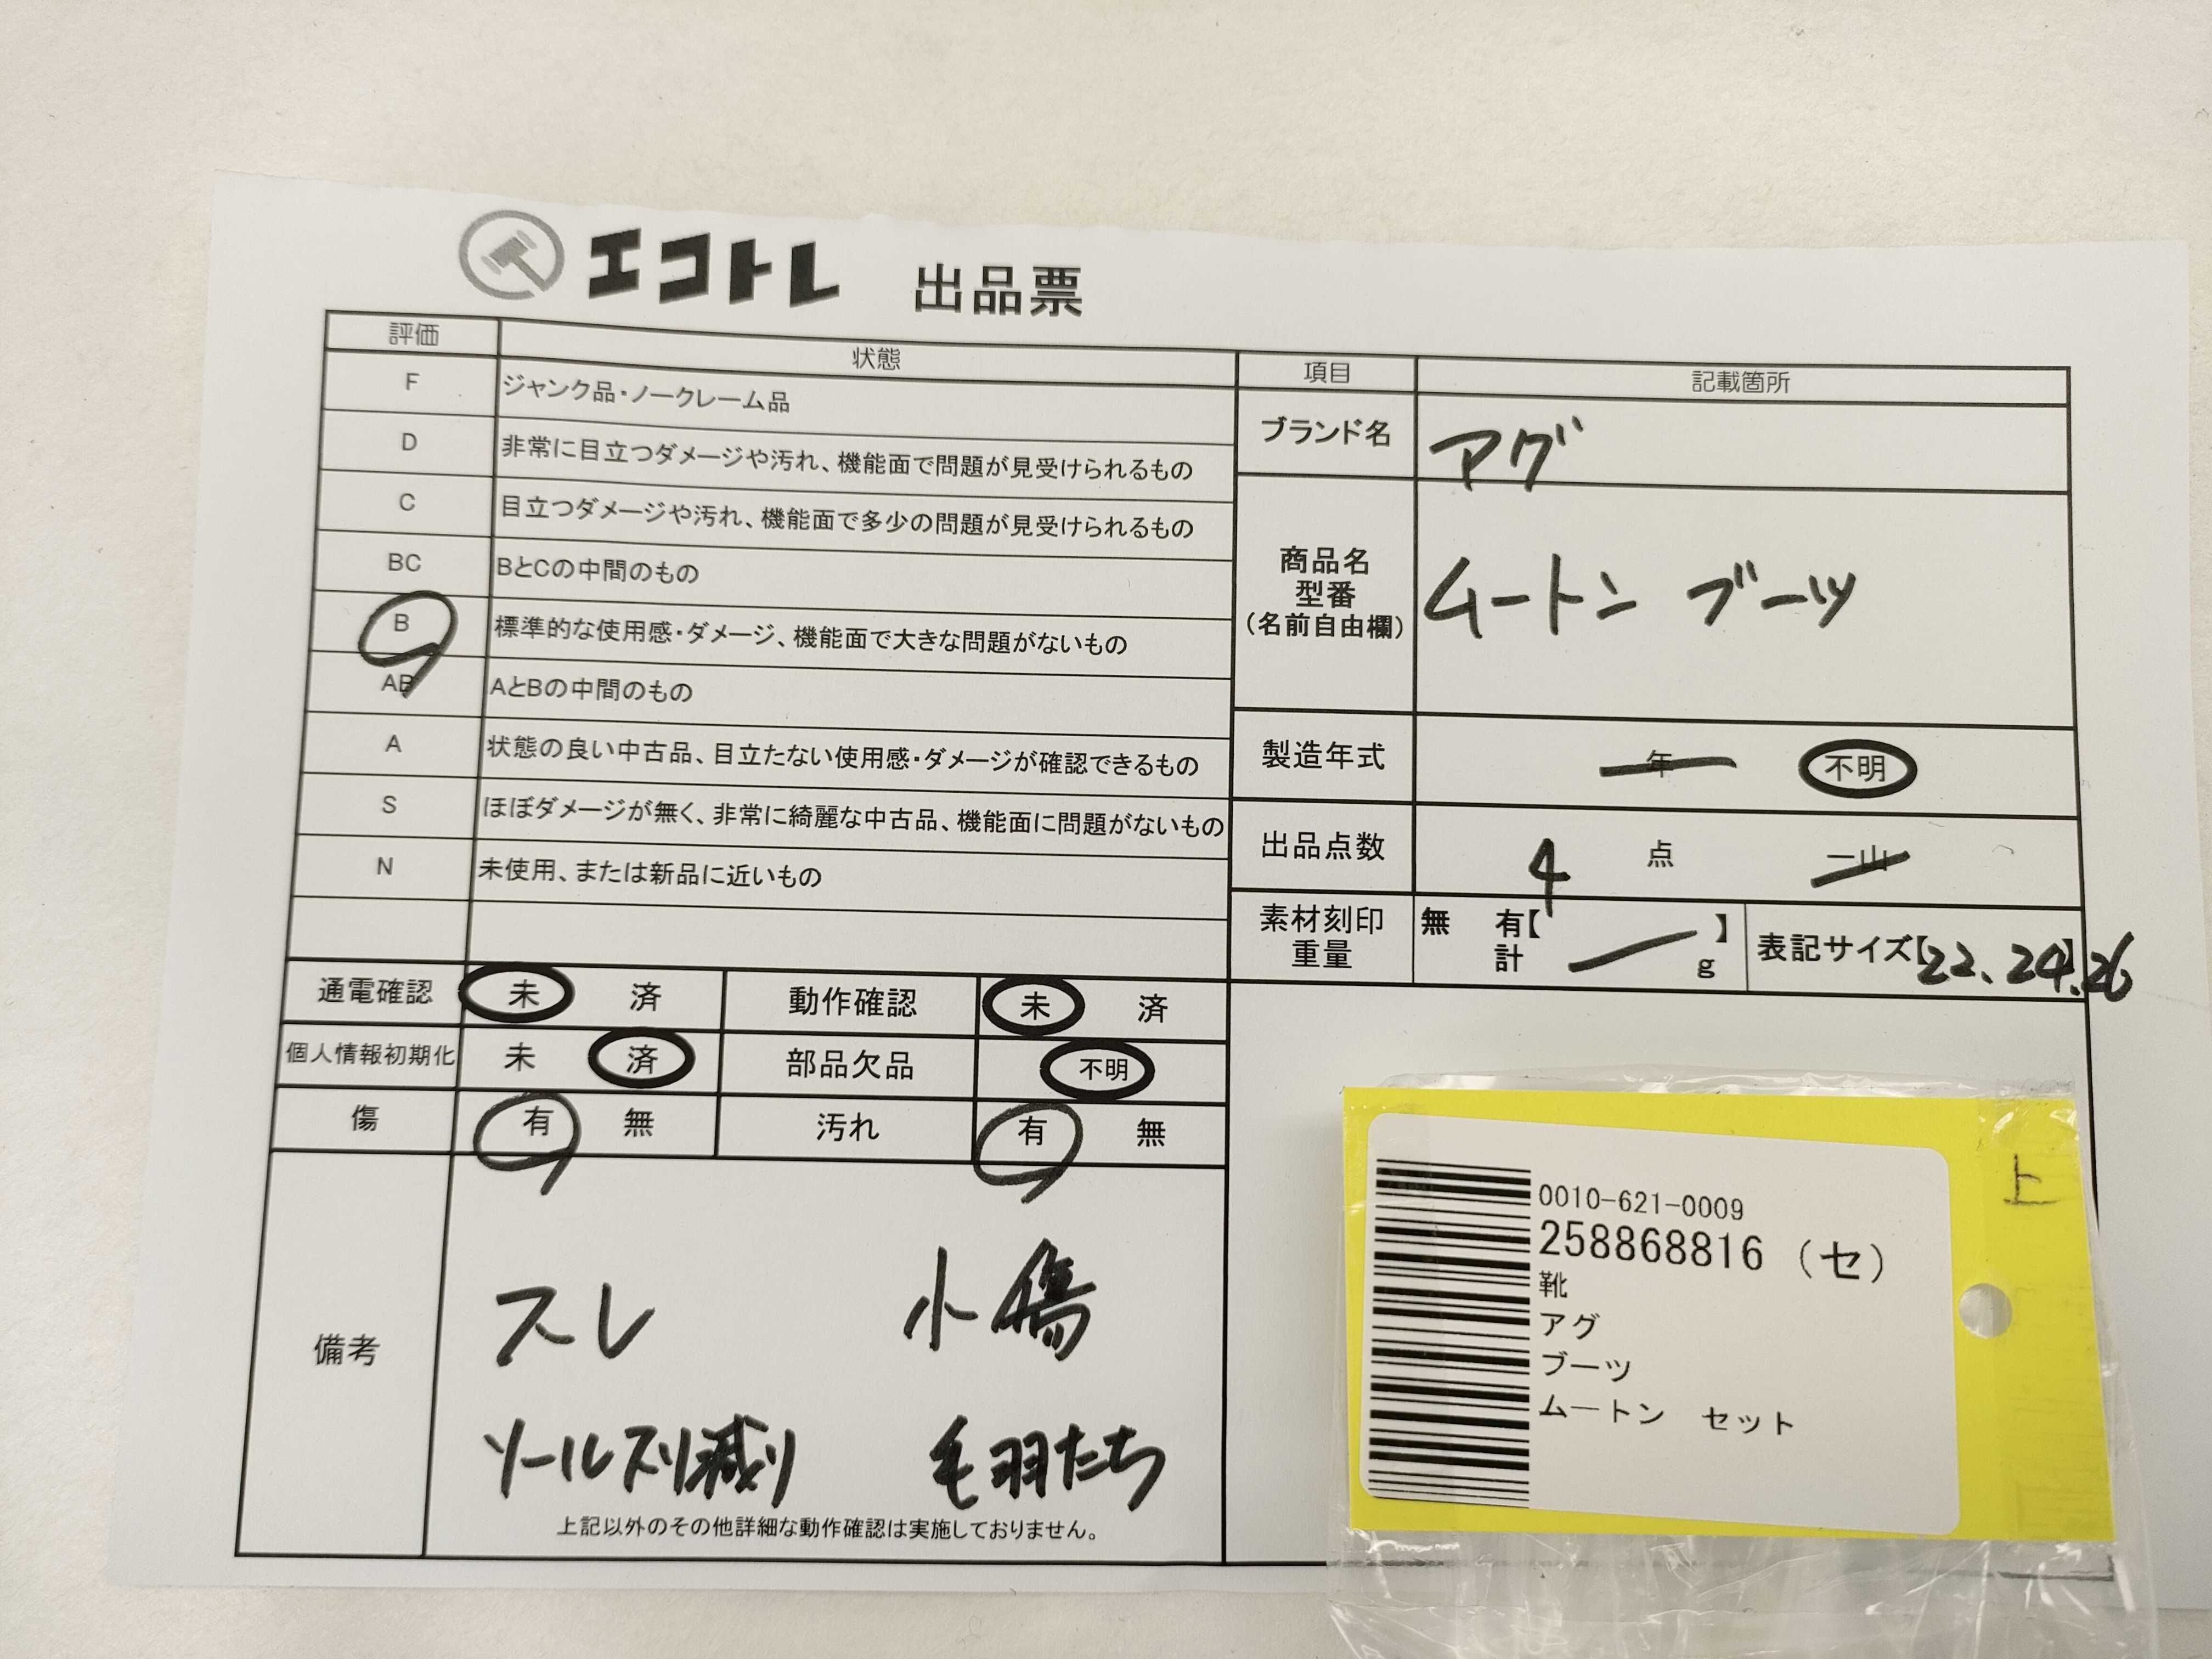 エコトレ 出品票
評価 状態
F ジャンク品・ノークレーム品
D 非常に目立つダメージや汚れ、機能面で問題が見受けられるもの
C 目立つダメージや汚れ、機能面で多少の問題が見受けられるもの
BC BとCの中間のもの
B 標準的な使用感・ダメージ、機能面で大きな問題がないもの
AB AとBの中間のもの
A 状態の良い中古品、目立たない使用感・ダメージが確認できるもの
S ほぼダメージが無く、非常に綺麗な中古品、機能面に問題がないもの
N 未使用、または新品に近いもの
項目 記載箇所
ブランド名 アグ
商品名
型番
(名前自由欄)
ムートン ブーツ
製造年式 年 不明
出品点数 4 点 一山
素材刻印 無 有【 】
重量 計 g
表記サイズ【22.24】.26
通電確認 未 済 動作確認 未 済
個人情報初期化 未 済 部品欠品 不明
傷 有 無 汚れ 有 無
備考
スレ 小傷
ソールスリ減り 毛羽たち
上記以外のその他詳細な動作確認は実施しておりません。
上
0010-621-0009
258868816 (セ)
靴
アグ
ブーツ
ムートン セット